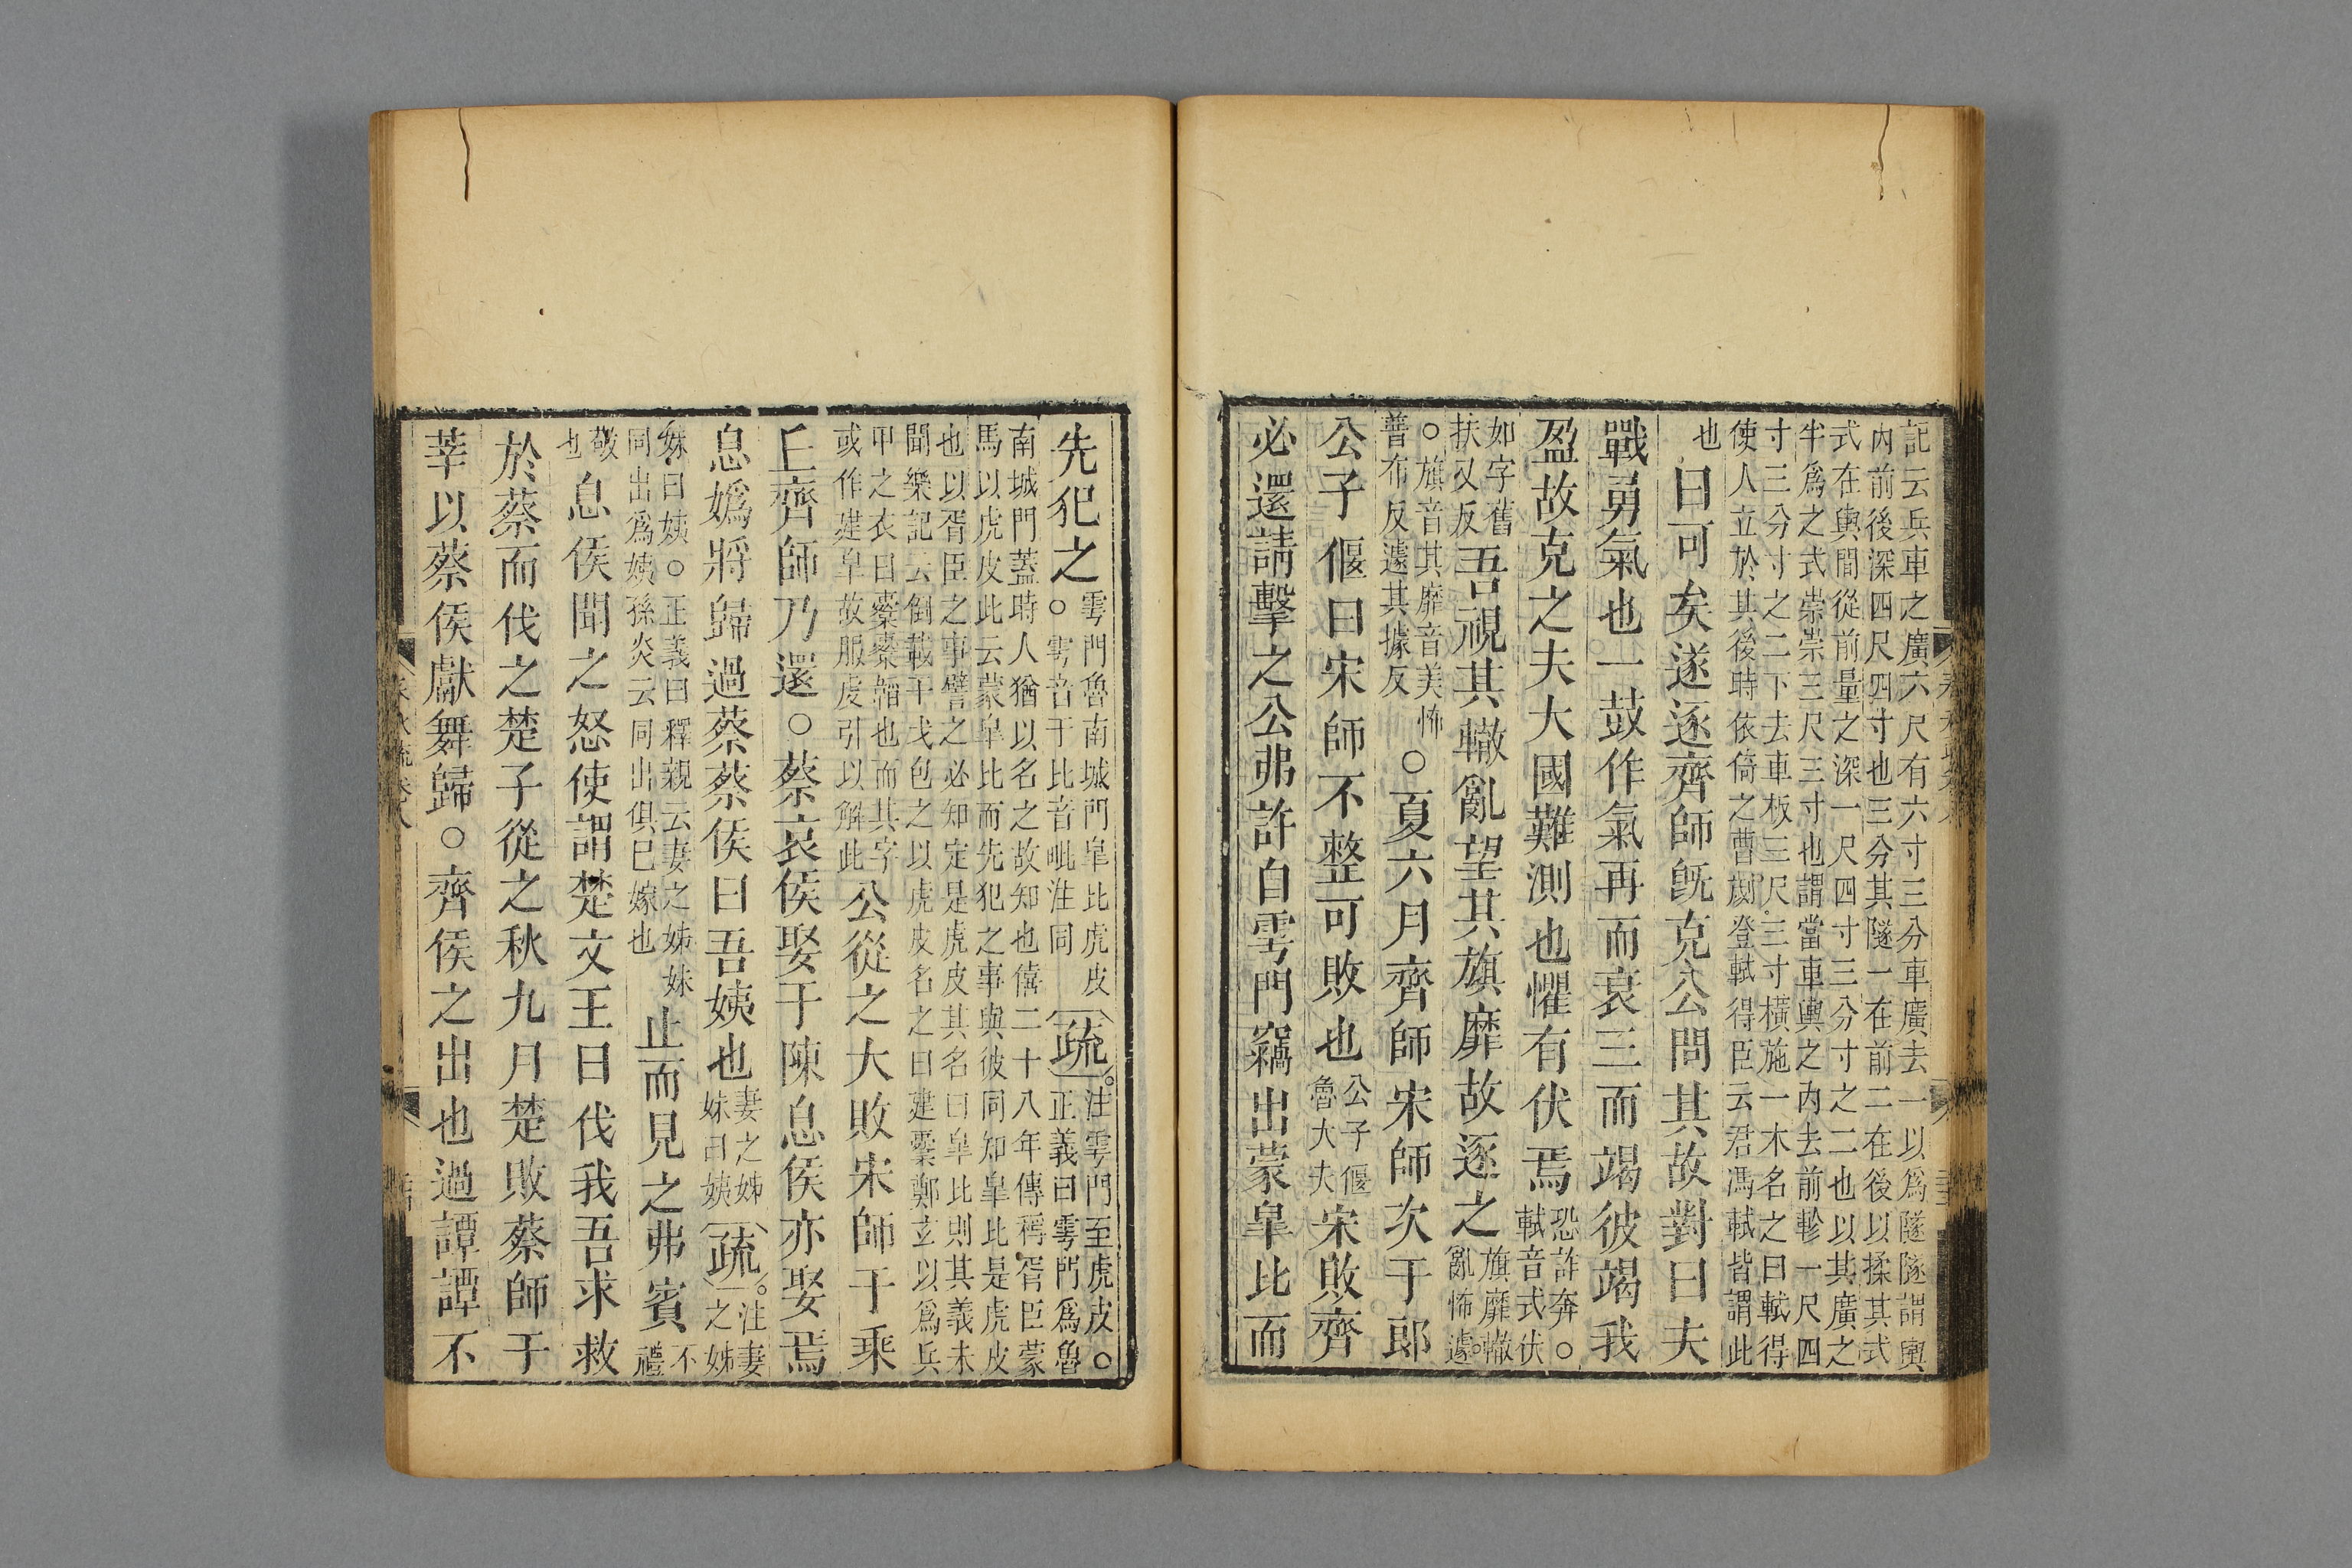 記云兵車之廣六尺有六寸三分車廣去一以爲隧隧謂輿
內前後深四尺四寸也三分其隧一在前二在後以揉其式
式在輿間從前量之深一尺四寸三分寸之二也以其廣之
半爲之式崇崇三尺三寸也謂當車輿之內去前軫一尺四
寸三分寸之二下去車板三尺三寸橫施一木名之曰軾得
使人立於其後時依倚之曹劌登軾得臣云君馮軾皆謂此
也
曰可矣遂逐齊師旣克公問其故對曰夫
戰勇氣也一鼓作氣再而衰三而竭彼竭我
盈故克之夫大國難測也懼有伏焉
恐詐奔○
軾音式伏
如字舊
扶又反
吾視其轍亂望其旗靡故逐之
旗靡轍
亂怖遽
○旗音其靡音美怖
普布反遽其據反
○夏六月齊師宋師次于郎
公子偃曰宋師不整可敗也
公子偃
魯大夫
宋敗齊
必還請擊之公弗許自雩門竊出蒙皐比而
先犯之
雩門魯南城門皐比虎皮
○雩音于比音毗注同
疏
注雩門至虎皮○
正義曰雩門爲魯
南城門蓋時人猶以名之故知也僖二十八年傳稱胥臣蒙
馬以虎皮此云蒙皐比而先犯之事與彼同知皐比是虎皮
也以胥臣之事譬之必知定是虎皮其名曰皐比則其義未
聞樂記云倒載干戈包之以虎皮名之曰建櫜鄭玄以爲兵
甲之衣曰櫜櫜韜也而其字
或作建皐故服虔引以解此
公從之大敗宋師于乘
丘齊師乃還○蔡哀侯娶于陳息侯亦娶焉
息嬀將歸過蔡蔡侯曰吾姨也
妻之姊
妹曰姨
疏
注妻
之姊
妹曰姨○正義曰釋親云妻之姊妹
同出爲姨孫炎云同出俱已嫁也
止而見之弗賓
不
禮
敬
也
息侯聞之怒使謂楚文王曰伐我吾求救
於蔡而伐之楚子從之秋九月楚敗蔡師于
莘以蔡侯獻舞歸○齊侯之出也過譚譚不